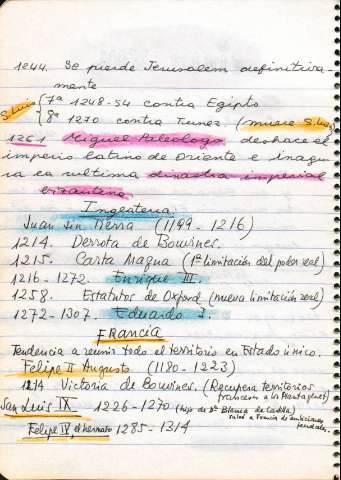 1244. Se pierde Jerusalem definitiva-
mente
S. Luis { 7ª 1248-54 contra Egipto
8ª 1270 contra Tunez (muere S. Luis)
1261 Miguel Paleologo deshace el
imperio latino de Oriente e inagu
ra la ultima dinastia imperial
bizantina
Inglaterra
Juan sin Tierra (1199 - 1216)
1214. Derrota de Bouvines.
1215. Carta Magna (1ª limitación del poder real)
1216 - 1272. Enrique III.
1258. Estatutos de Oxford (nueva limitación real)
1272 - 1307. Eduardo I.
FRANCIA
Tendencia a reunir todo el territorio en Estado único.
Felipe II Augusto (1180 - 1223)
1214 Victoria de Bouvines. (Recupera territorios
franceses a los Plantagenet)
San Luis IX 1226 - 1270 (hijo de Dª Blanca de Castilla)
salvó a Francia de ambiciones
feudales.
Felipe IV, el hermoso 1285 - 1314